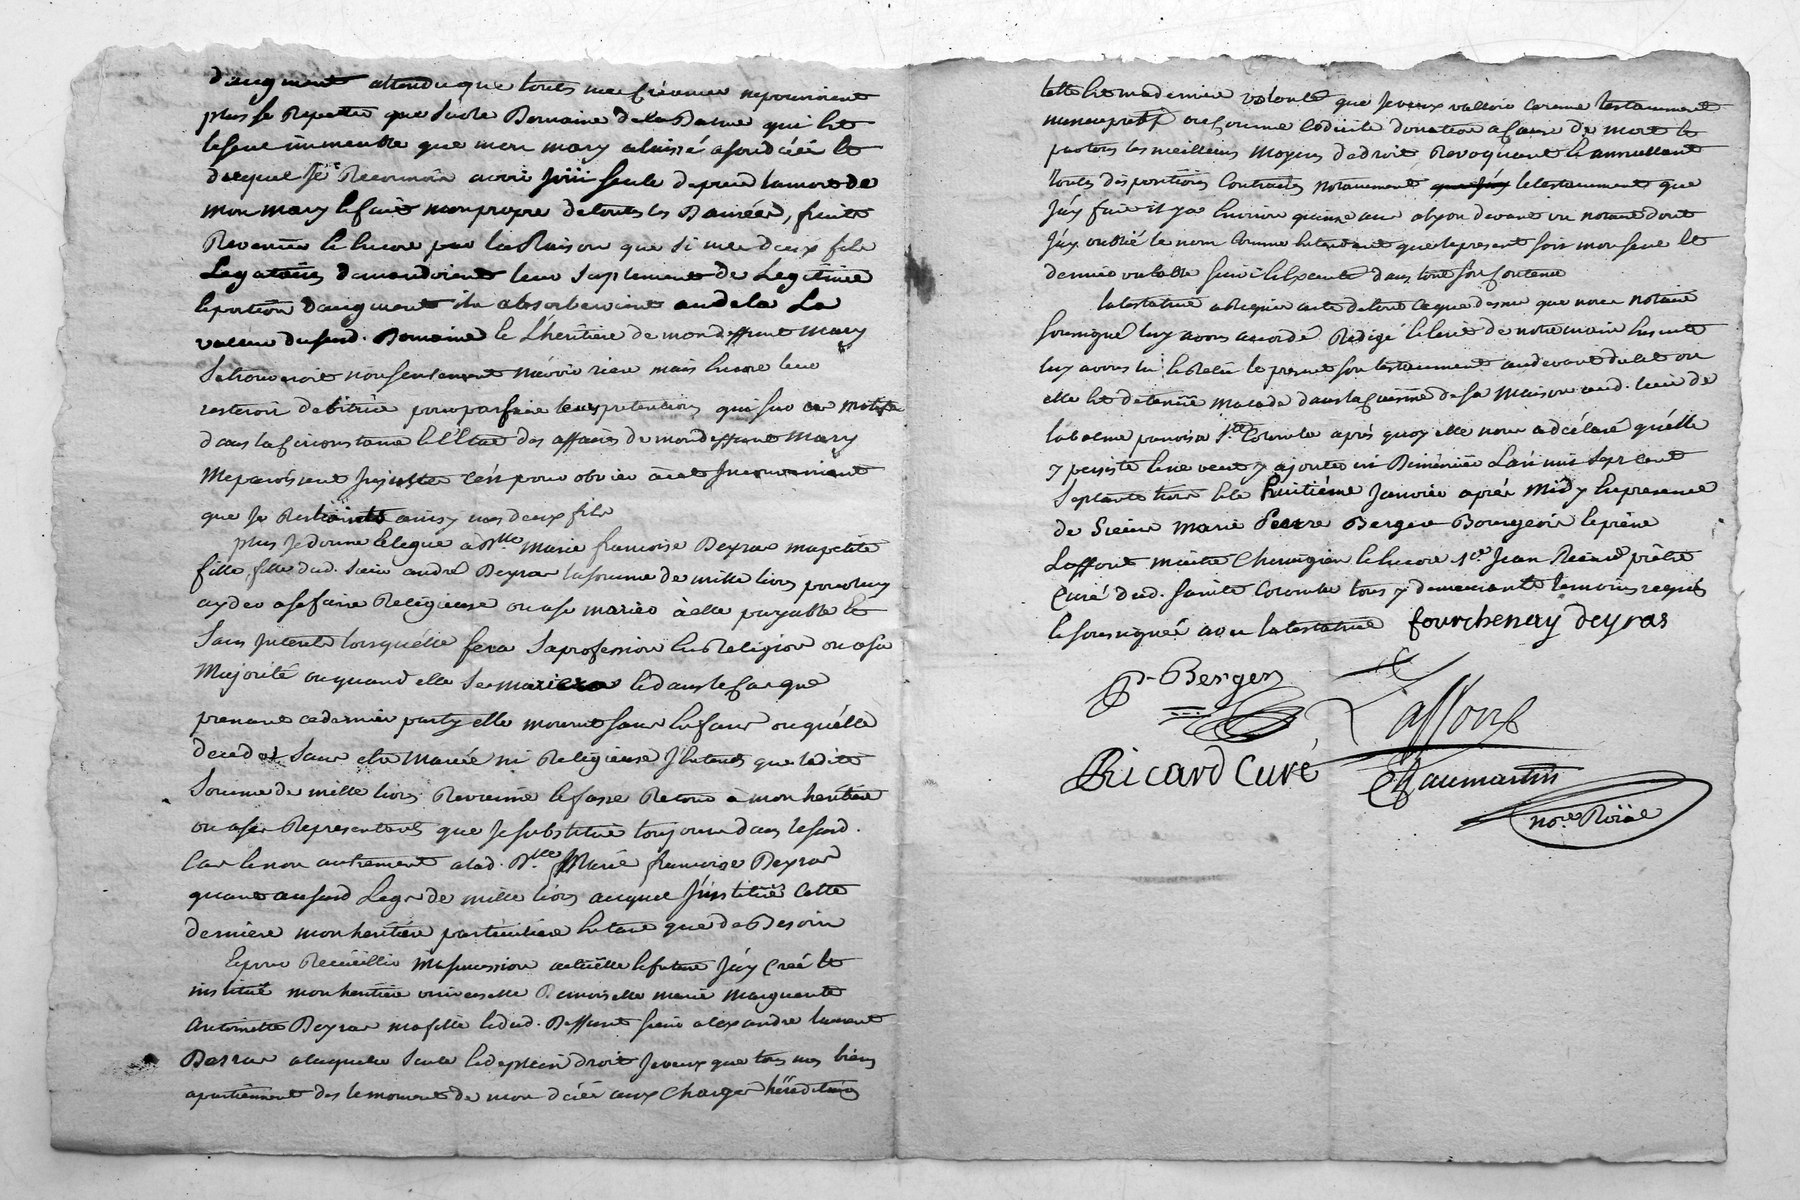 d'augment attendu que touts mes créances ne pourroient
plus se Repetter que sur le Domaine de la Balme qui Est
le seul immeuble que mon mary a laissé a son décés Et
duquel Je Reconnois avoir Joüi seule depuis la mort de
mon mary Et fait mon propre de touts les Danrées, fruits
Revenus Et Encore par la Raison que si mes deux fils
Legataires demandoient leur suplement de Legitime
Et portion d'augment ils absorberoient audela La
valleur dususd. Domaine Et L'héritiere de mon deffunt Mary
se trouveroit non seulement n'avoir rien mais Encore leur
resteroit debitrice pour parfaire leurs pretentions qui sur ce motif
dans la circonstance Et l'Etat des affaires de mon deffunt Mary
me paroissent injustes C'est pour obvier à cet Inconvenient
que Je Restraints ainsy mes deux fils
plus Je donne Et legue a Dlle Marie francoise Deyras ma petite
fille, fille dud. Sieur andré Deyras la somme de mille livres pour luy
ayder a se faire Religieuse ou a se marier à elle payable Et
sans Interets lorsquelle fera sa profession En Religion ou a sa
Majorité ou quand elle se mariera Et dans le Cas que
prenant ce dernier party elle mourut sans Enfans ou quélle
decedat sans etre Mariée ni Religieuse J'Entends que ladite
somme de mille livres Revienne Et fasse Retour à mon heritiere
ou a ses Representants que Je substitue toujours dans le susd.
Cas Et non autrement a lad. Dlle Marie francoise Deyras
quant au susd Legs de mille livres auquel J'institüe Cette
derniere mon héritiere particuliere En tant que de Besoin
Et pour Recueillir ma succession actuelle Et future J'ay Créé Et
institué mon heritiere universelle Demoiselle marie Marguerite
Antoinette Deyras ma fille Et dud. Deffunt sieur alexandre laurent
Deyras a laquelle seule Et de plein droit Je veux que tous mes biens
apartiennent des le moment de mon décés aux Charges héréditaires
telle Est ma derniere volonté que Je veux valloir comme testamment
nuncupatif ou comme Codicile donation a Cause de mort Et
par tous les meilleurs moyens de droit, Revoquant Et annullant
toutes dispositions Contraires notamment le testamment que
J'ay fait il y a Environ quinze ans a lyon devant un notaire dont
J'ay oublié le nom comme Entendant que le present soit mon seul Et
dernier vallable suivi Et Executé dans tout son Contenu
la testatrice a Requis acte de tout ce que dessus que nous notaire
soussigné luy avons accordé Redigé Et Ecrit de notre main Ensuite
luy avons lu Et Relu le present son testamment au devant du lit ou
elle Est detenüe malade dans la Cuisine de sa maison aud. lieu de
la balme paroisse Ste Colombe aprés quoy elle nous a déclaré quélle
y persiste Et ne veut y ajouter ni Diminüer L'an mil sept cent
septante trois Et le huitiéme Janvier aprés Midy En presence
de Sieur Marie Pierre Berger Bourgeois Et
Laffont maitre Chirurgien Et Encore Jean Ricard prêtre
Curé dud. Sainte Colombe tous y demeurants temoins requis
Et soussignés avec la testatrice fourchenay deyras
P Berger
Laffont
Ricard Curé
Chaumartin
nore Roïal